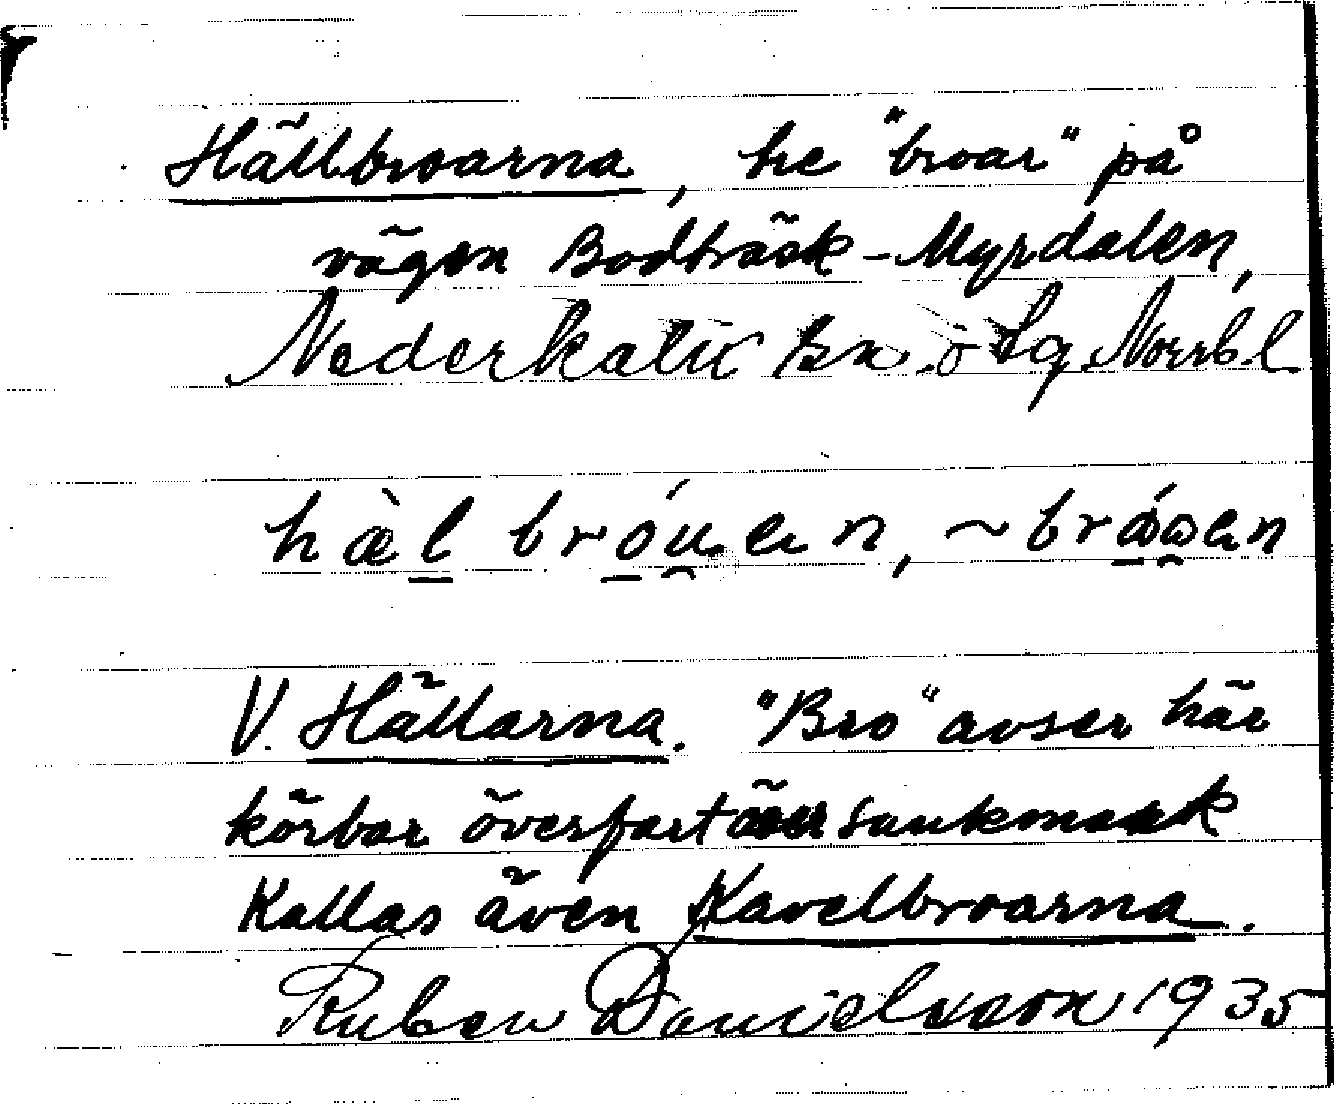 Hällbroarna, tre "broar" på
vägen Bodträsk - Myrdalen,
Nederkalix sn. ö Lg. Norrb. l
hæ̀l bróu̯en, ~ brǻω̯en
V. Hällarna. "Bro" avser här
körbar överfart över sankmark
Kallas även Kavelbroarna.
Ruben Danielsson 1935